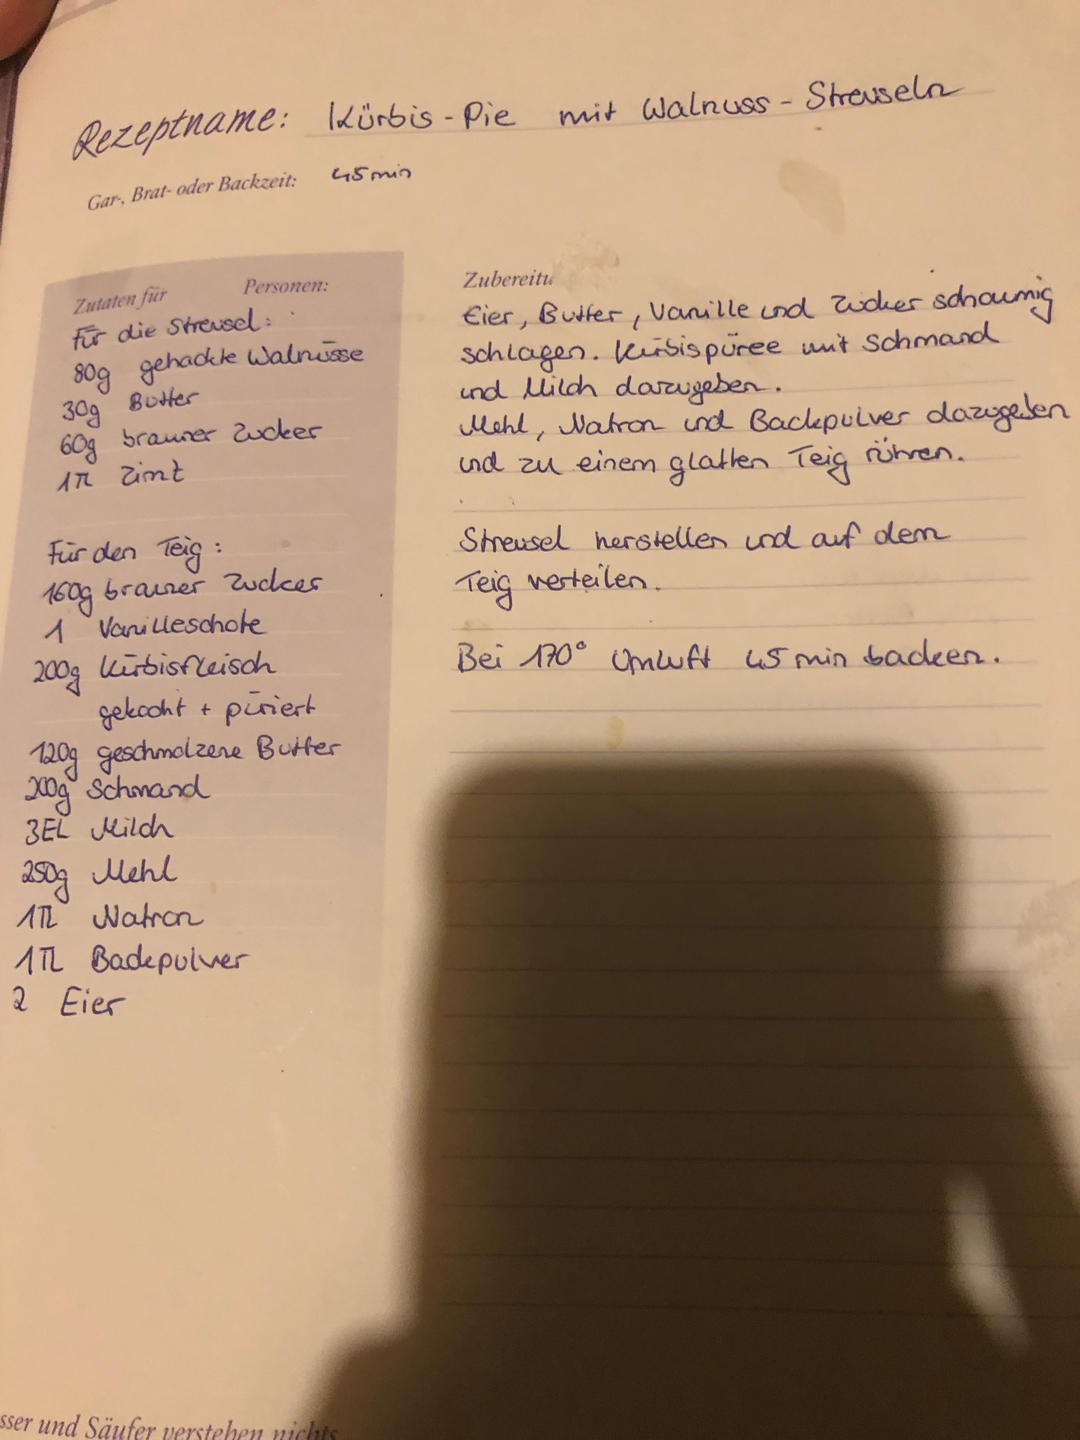 Rezeptname: Kürbis-Pie mit Walnuss-Streuseln
Gar-, Brat- oder Backzeit: 45 min
Zutaten für Personen:
Für die Streusel:
80g gehackte Walnüsse
30g Butter
60g brauner Zucker
1TL Zimt
Für den Teig:
160g brauner Zucker
1 Vanilleschote
200g Kürbisfleisch
gekocht + püriert
120g geschmolzene Butter
200g Schmand
3EL Milch
250g Mehl
1TL Natron
1TL Backpulver
2 Eier
Zubereitu
Eier, Butter, Vanille und Zucker schaumig
schlagen. Kürbispüree mit Schmand
und Milch darzugeben.
Mehl, Natron und Backpulver dazugeben
und zu einem glatten Teig rühren.
Streusel herstellen und auf dem
Teig verteilen.
Bei 170° Umluft 45 min backen.
sser und Säufer verstehen nichts